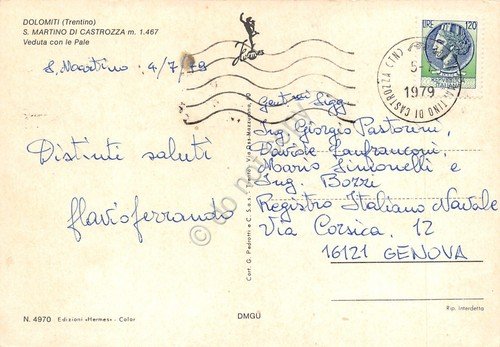 DOLOMITI (Trentino)
S. MARTINO DI CASTROZZA m. 1.467
Veduta con le Pale
S. Martino : 4/7/79
Distinti saluti
flavioferrando
LIRE 120
1979
TINO DI CASTROZZA (TN)
Gent.mi Sigg.
Ing. Giorgio Pastorini,
Davide Lanfranconi,
Mario Simonelli e
Ing. Bozzi
Registro Italiano Navale
Via Corsica, 12
16121 GENOVA
Cart. G. Pedotti e C. S.a.s. - Trento, Via dei Mezzocorona, 10
N. 4970 Edizioni «Hermes» - Color
DMGÜ
Rip. interdetta